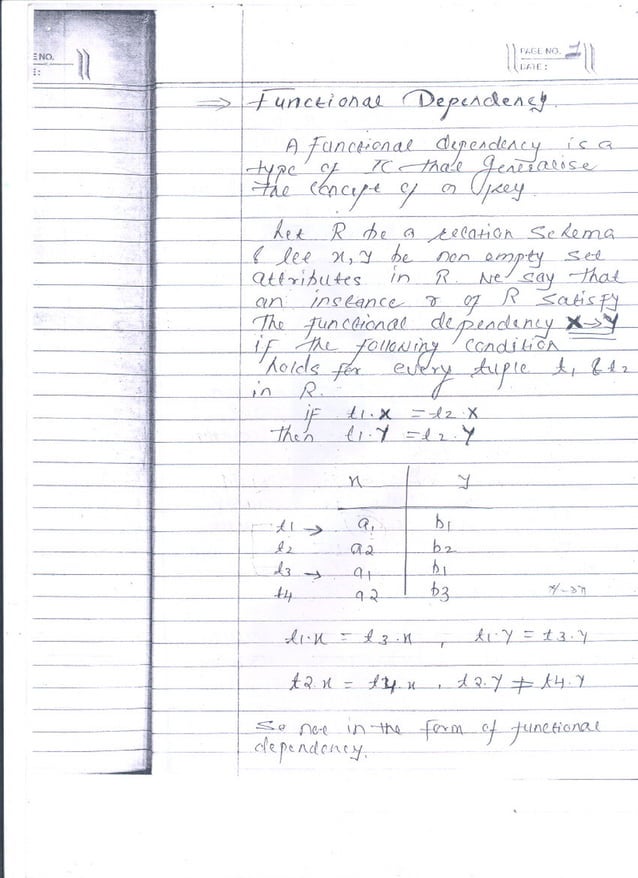 E NO.
E:
PAGE NO. 1
DATE:
⇒ Functional Dependency.
A functional dependency is a
type of IC that generalise
the concept of a key
Let R be a relation Schema
& let x, y be non empty set
attributes in R. We say that
an instance r of R satisfy
The functional dependency X→Y
if the following condition
holds for every tuple t1 & t2
in R.
if t1.X = t2.X
then t1.Y = t2.Y
x y
t1 → a1 b1
t2 a2 b2
t3 → a1 b1
t4 a2 b3
t1.x = t3.x , t1.y = t3.y
t2.x = t4.x , t2.y ≠ t4.y
So not in the form of functional
dependency.